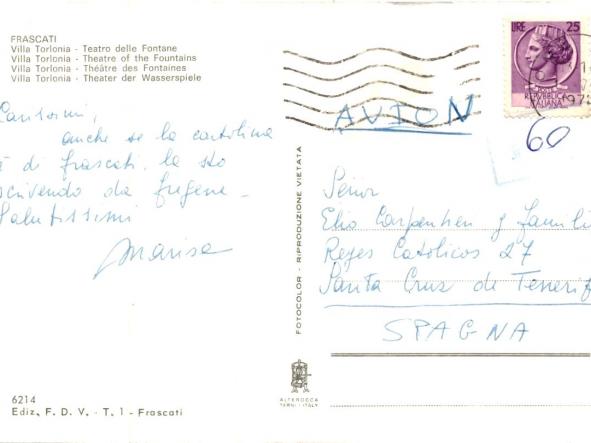 FRASCATI
Villa Torlonia - Teatro delle Fontane
Villa Torlonia - Theatre of the Fountains
Villa Torlonia - Théâtre des Fontaines
Villa Torlonia - Theater der Wasserspiele
Carissimi,
anche se la cartolina
è di frascati la sto
scrivendo da fregene -
Salutissimi
Marisa
6214
Ediz. F. D. V. - T. 1 - Frascati
FOTOCOLOR - RIPRODUZIONE VIETATA
ALTEROCCA
TERNI - ITALY
LIRE 25
REPUBBLICA
ITALIANA
AVION
60
Señor
Elio Carpenter y famili
Reyes Catolicos 27
Santa Cruz de Tenerif
SPAGNA